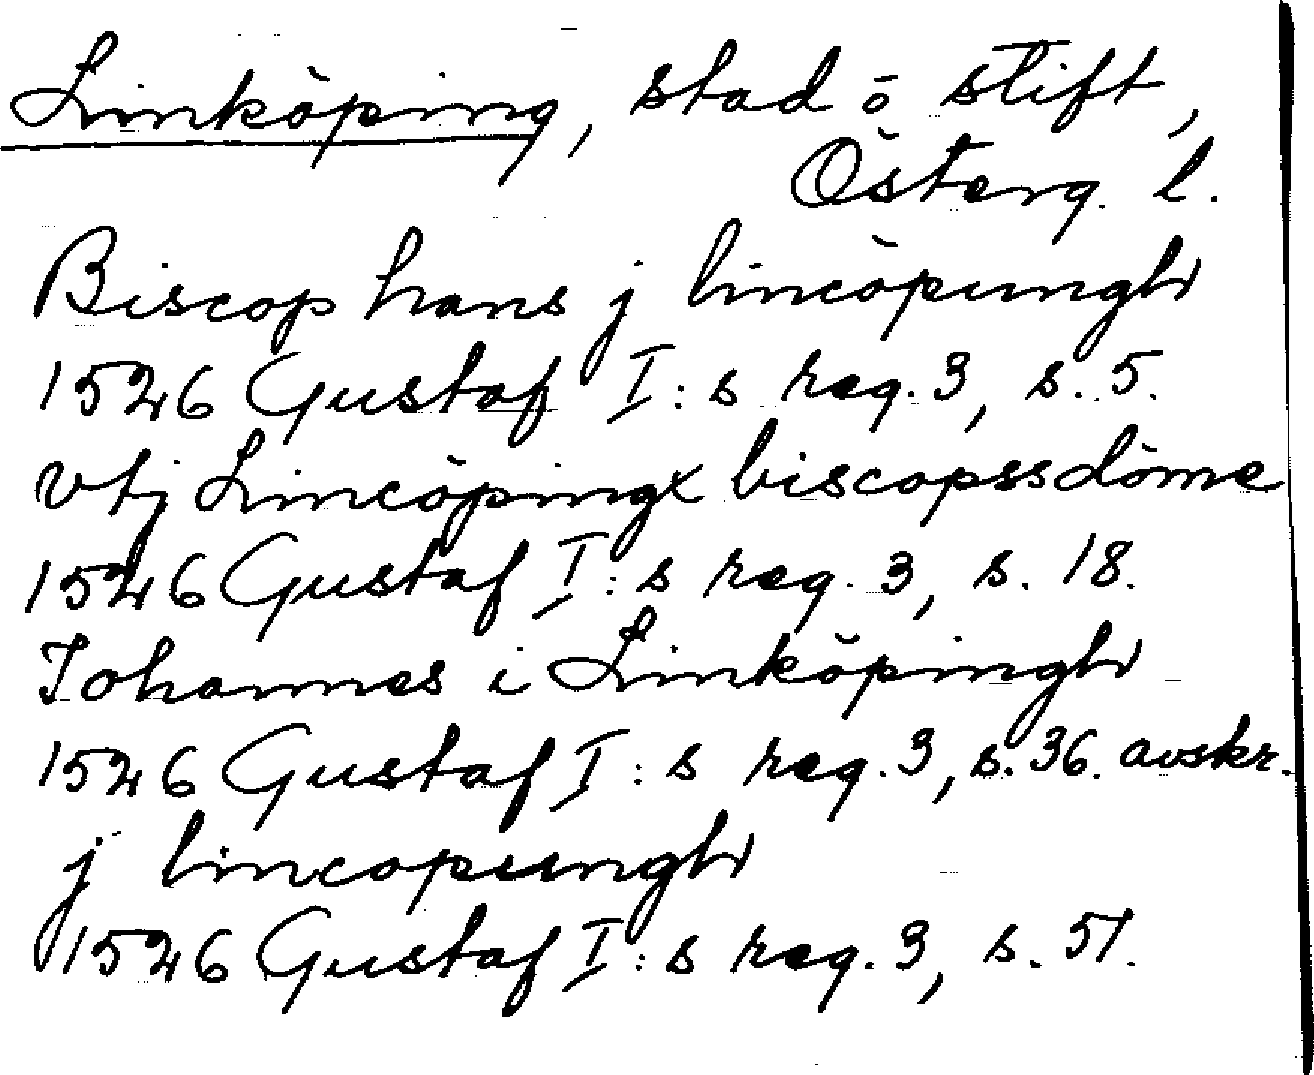 Linköping, stad o stift,
Österg. l.
Biscop hans j lincöpungh
1526 Gustaf I:s reg. 3, s. 5.
vtj Lincöpingx biscopssdöme
1526 Gustaf I:s reg. 3, s. 18.
Johannes i Linköpingh
1526 Gustaf I:s reg. 3, s. 36. avskr.
j lincopungh
1526 Gustaf I:s reg. 3, s. 51.